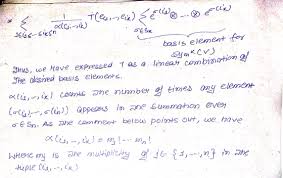 ∑ 1/α(i₁,…,iₖ) T(e_{i₁},…,e_{iₖ}) ∑_{σ∈Sₖ} e^{σ(i₁)} ⊗ … ⊗ e^{σ(iₖ)}
basis element for
Symᵏ(V)
Thus, we have expressed T as a linear combination of
the desired basis elements.
α(i₁,…,iₖ) counts the number of times any element
(σ(i₁),…,σ(iₖ)) appears in the summation over
σ∈Sₙ. As the comment below points out, we have
α(i₁,…,iₖ) = m₁! … mₙ!
where mⱼ is the multiplicity of j∈{1,…,n} in the
tuple (i₁,…,iₖ)